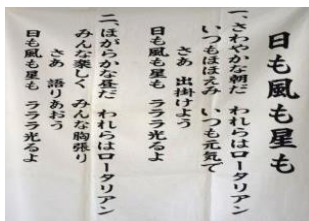 日も風も星も
一、さわやかな朝だ われらはロータリアン
いつもほほえみ いつも元気で
さあ 出掛けよう
日も風も星も ラララ光るよ
二、ほがらかな昼だ われらはロータリアン
みんな楽しく みんな胸張り
さあ 語りあおう
日も風も星も ラララ光るよ